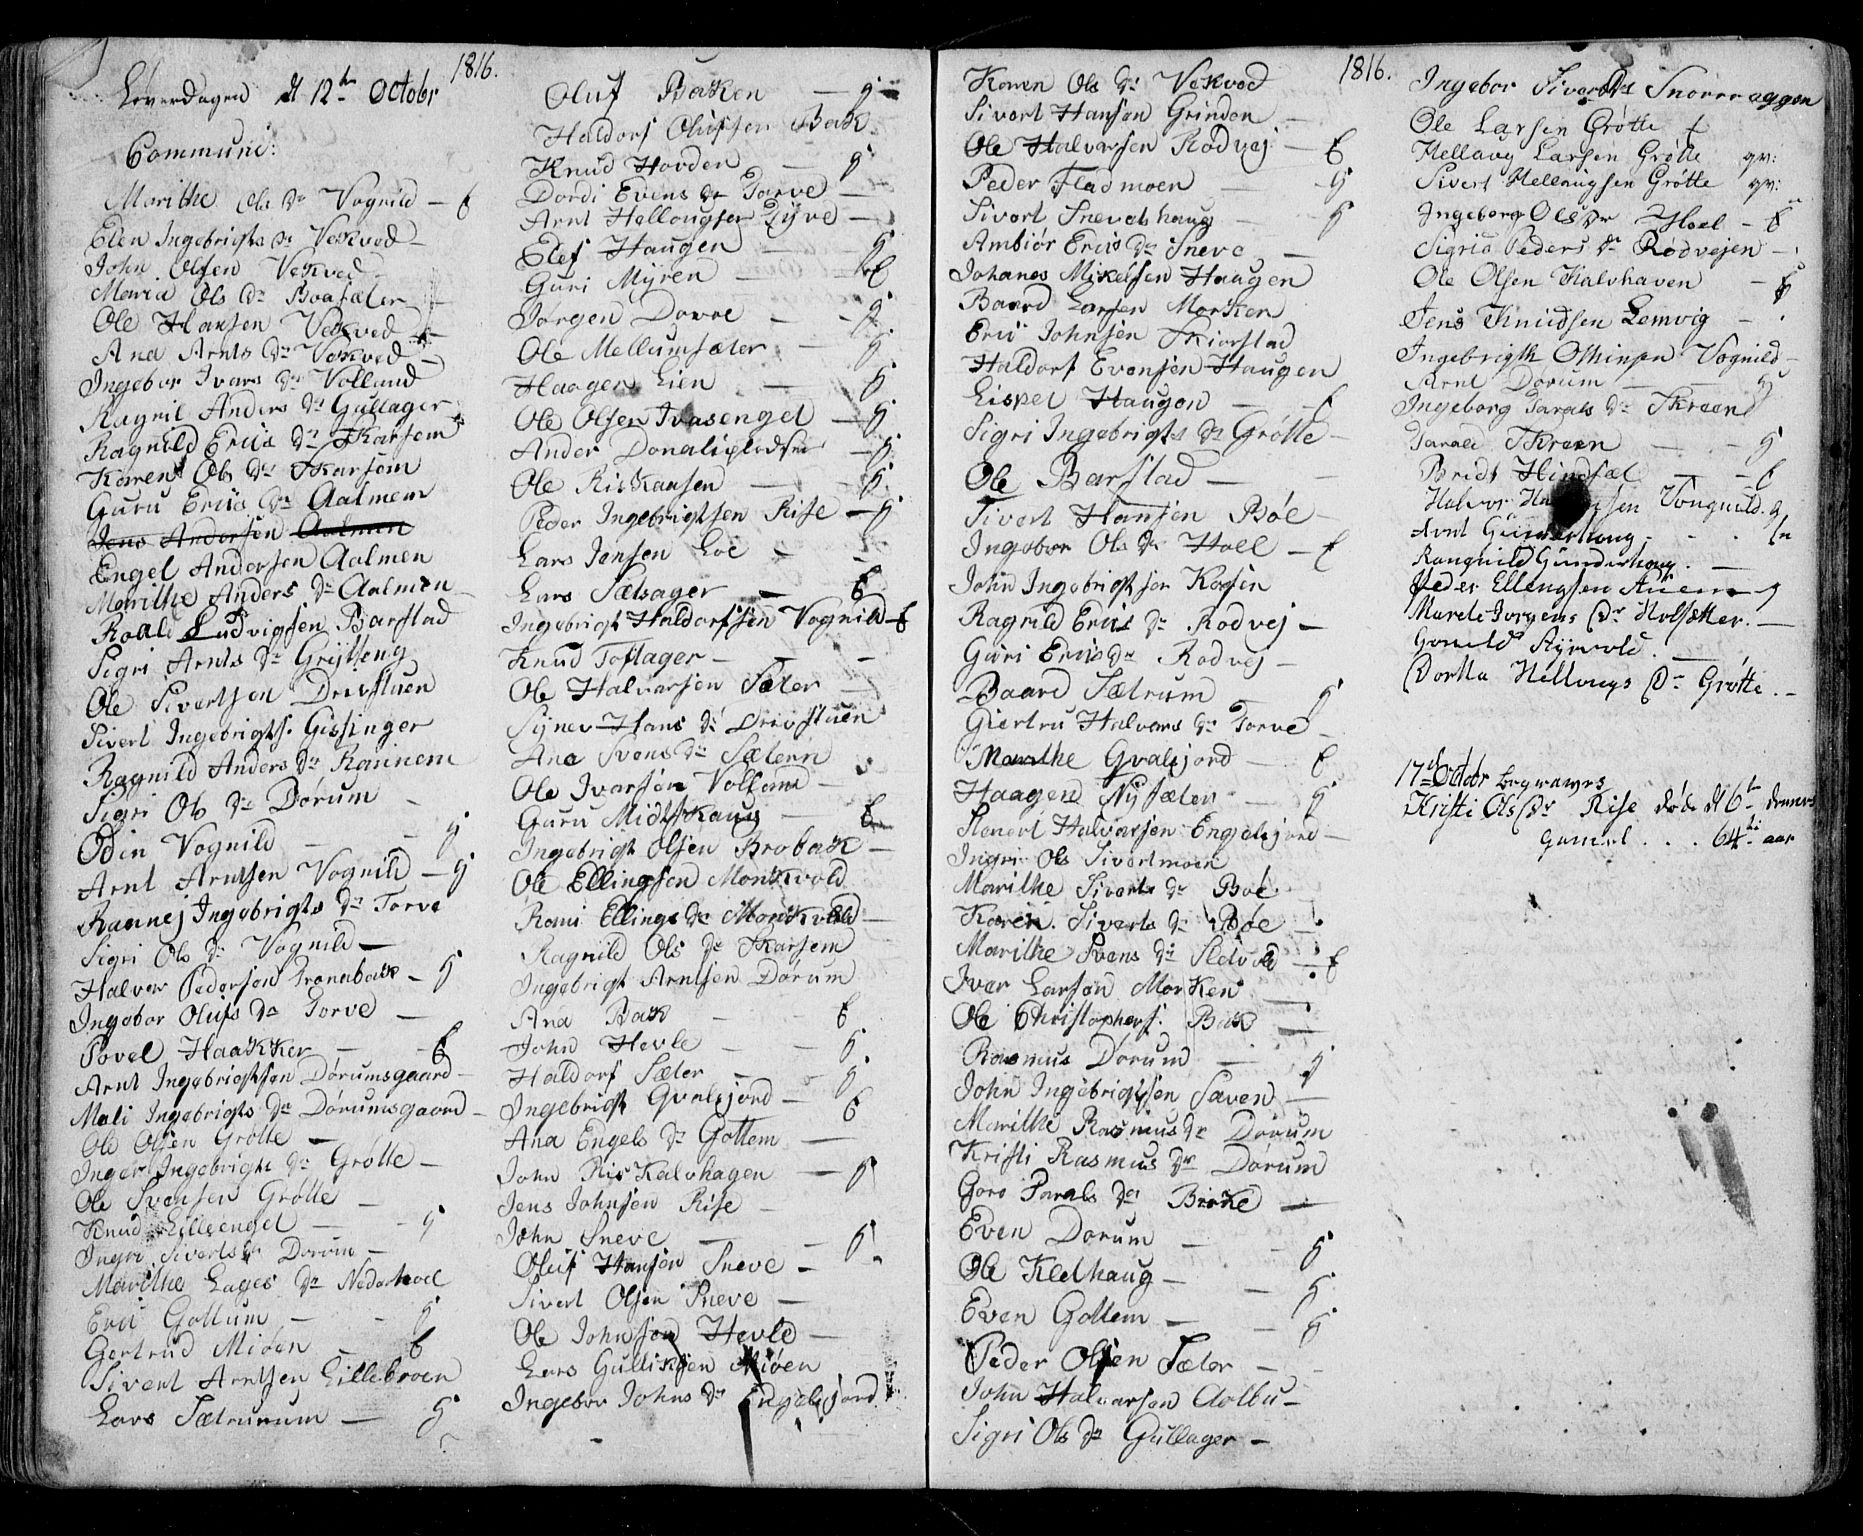 1816.
Løverdagen d 12te Octobr
Communi:
Marithe Ols Dr Vognild — E
Elen Ingebrigts Dr Vekved —
John Olsen Vekved —
Maria Ols Dr Boasæter —
Ole Hansen Vekved —
Ana Arnts Dr Vekved —
Ingebor Ivars Dr Volland
Ragnil Anders Dr Gullager
Ragnild Erics Dr Skarsem
Karen Ols Dr Skarsem
Guru Erics Dr Aalmen
Jens Andersen Aalmen
Engel Andersen Aalmen
Marithe Anders Dr Aalmen —
Roald Ludvigsen Barstad
Sigri Arnts Dr Grijteng
Ole Sivertsen Drivstuen
Sivert Ingebrigts. Gissinger
Ragnild Anders Dr Raunem
Sigri Ols Dr Dørum —
Odin Vognild — — g
Arnt Arntsen Vognild — g
Rannej Ingebrigts Dr Torve
Sigri Ols Dr Vognild —
Halvor Pedersen Tronabak — g
Ingebor Olufs Dr Torve —
Povel Haakker — — E
Arnt Ingebrigtsen Dørumsgaard —
Mali Ingebrigts Dr Dørumsgaard —
Ole Olsen Grøtte —
Inger Ingebrigts Dr Grøtte —
Ole Svensen Grøtte —
Knud Lilleengel — — g
Ingri Siverts Dr Dorum —
Marithe Lages Dr Nederhoel
Eric Gottum — — g
Gertrud Miøen — E
Sivert Arntsen Lillebroen
Lars Sætrumum — g
Oluf Baken — g —
Haldors Olufsen Bak
Knud Hovden — g
Dordi Evens Dr Torve —
Arnt Hellougsen Zijve —
Elef Haugen — g
Guri Myren — E
Jørgen Dovre — — g
Ole Mellumsæter — g
Haagen Lien — g
Ole Olsen Ivasengel — g
Ander Donaliplidsen — g
Ole Riskaasen — g
Peder Ingebrigtsen Rise — g
Lars Jensen Loe — —
Lars Sætsager — E
Ingebrigt Haldorssen Vognild — E
Knud Toftager — — —
Ole Halvarsen Sæter —
Synev Hans Dr Drivstuen
Ana Svens Dr Sætern
Ole Ivarsen Volland —
Guru Midtskaug — E
Ingebrigt Olsen Brobak —
Ole Ellingsen Monkvold
Romi Ellings Dr Monkvold —
Ragnild Ols Dr Skarsem
Ingebrigt Arntsen Dørum
Ana Bak — — E
John Hevle — — g
Haldors Sæter — — g
Ingebrigt Gvalsjord — E
Ana Engels Dr Gottem —
John Ris Kalvhagen — g
Jens Johnsen Rise —
John Sneve — — g
Oluf Hansen Sneve —
Sivert Olsen Sneve —
Ole Johnsen Hevle —
Lars Gulliksen Miøen
Ingebor Johns Dr Engelsjord
1816.
Karen Ols Dr Vekved
Sivert Hansen Grinden —
Ole Halvarsen Rodvej — E
Peder Fladmoen — g
Sivert Snevashaug — g
Ambiør Erics Dr Sneve —
Johanes Mikelsen Haugen
Baard Larsen Morken
Eric Johnsen Skiørstad
Haldors Evensen Haugen
Lispet Haugen — — E
Sigri Ingebrigts Dr Grøtte —
Ole Barstad — —
Sivert Hansen Bøe —
Ingebor Ols Dr Hoel — E
John Ingebrigtsen Kåsen
Ragnild Erics Dr Rodvej —
Guri Erics Dr Rodvej —
Baard Sætrum — g
Giertru Halvars Dr Torve —
Marithe Gvalsjord — E
Haagen Nysæter — g
Stenert Halvarsen Engelsjord —
Ingri Ols Sivertmoen
Marithe Siverts Dr Boe
Karen Siverts Dr Boe —
Marithe Svens Dr Sletvold — E
Ivar Larsen Morken —
Ole Christophers. Bak —
Rasmus Dorum — g
John Ingebrigtsen Saven —
Marithe Rasmus Dr Dorum
Kristi Rasmus Dr Dorum
Goro Tarals Dr Birke —
Even Dorum — — g
Ole Kleshaug — — g
Even Gottem — — g
Peder Olsen Sæter — —
John Halvarsen Aalbu —
Sigri Ols Dr Gullager —
Ingebor Siverts Dr Snoreaggen
Ole Larsen Grøtte E
Hellaug Larsen Grøtte gv:
Sivert Hellaugsen Grøtte gv:
Ingeborg Ols Dr Hoel — E
Sigrid Peders Dr Rødvejen —
Ole Olsen Kalvhaven — E
Jens Knudsen Lemvig —
Ingebrigth Othinsen Vognild —
Arnt Dorum — — g
Ingeborg Tarals Dr Skreen
Tarald Skreen — g
Bridt Hindsæt — E
Arnt Gunnerhoug
Rangnild Gunderhoug. —
Peder Ellengsen Auen — g
Marete Jorgens Dr Holsetter. —
Gunild Rymvold. —
Dortha Hellougs Dr Grøtte. —
17de Octobr begraves
Kristi Ols Dr Rise døde d 6te dennes
Gamel . . . 64 aar